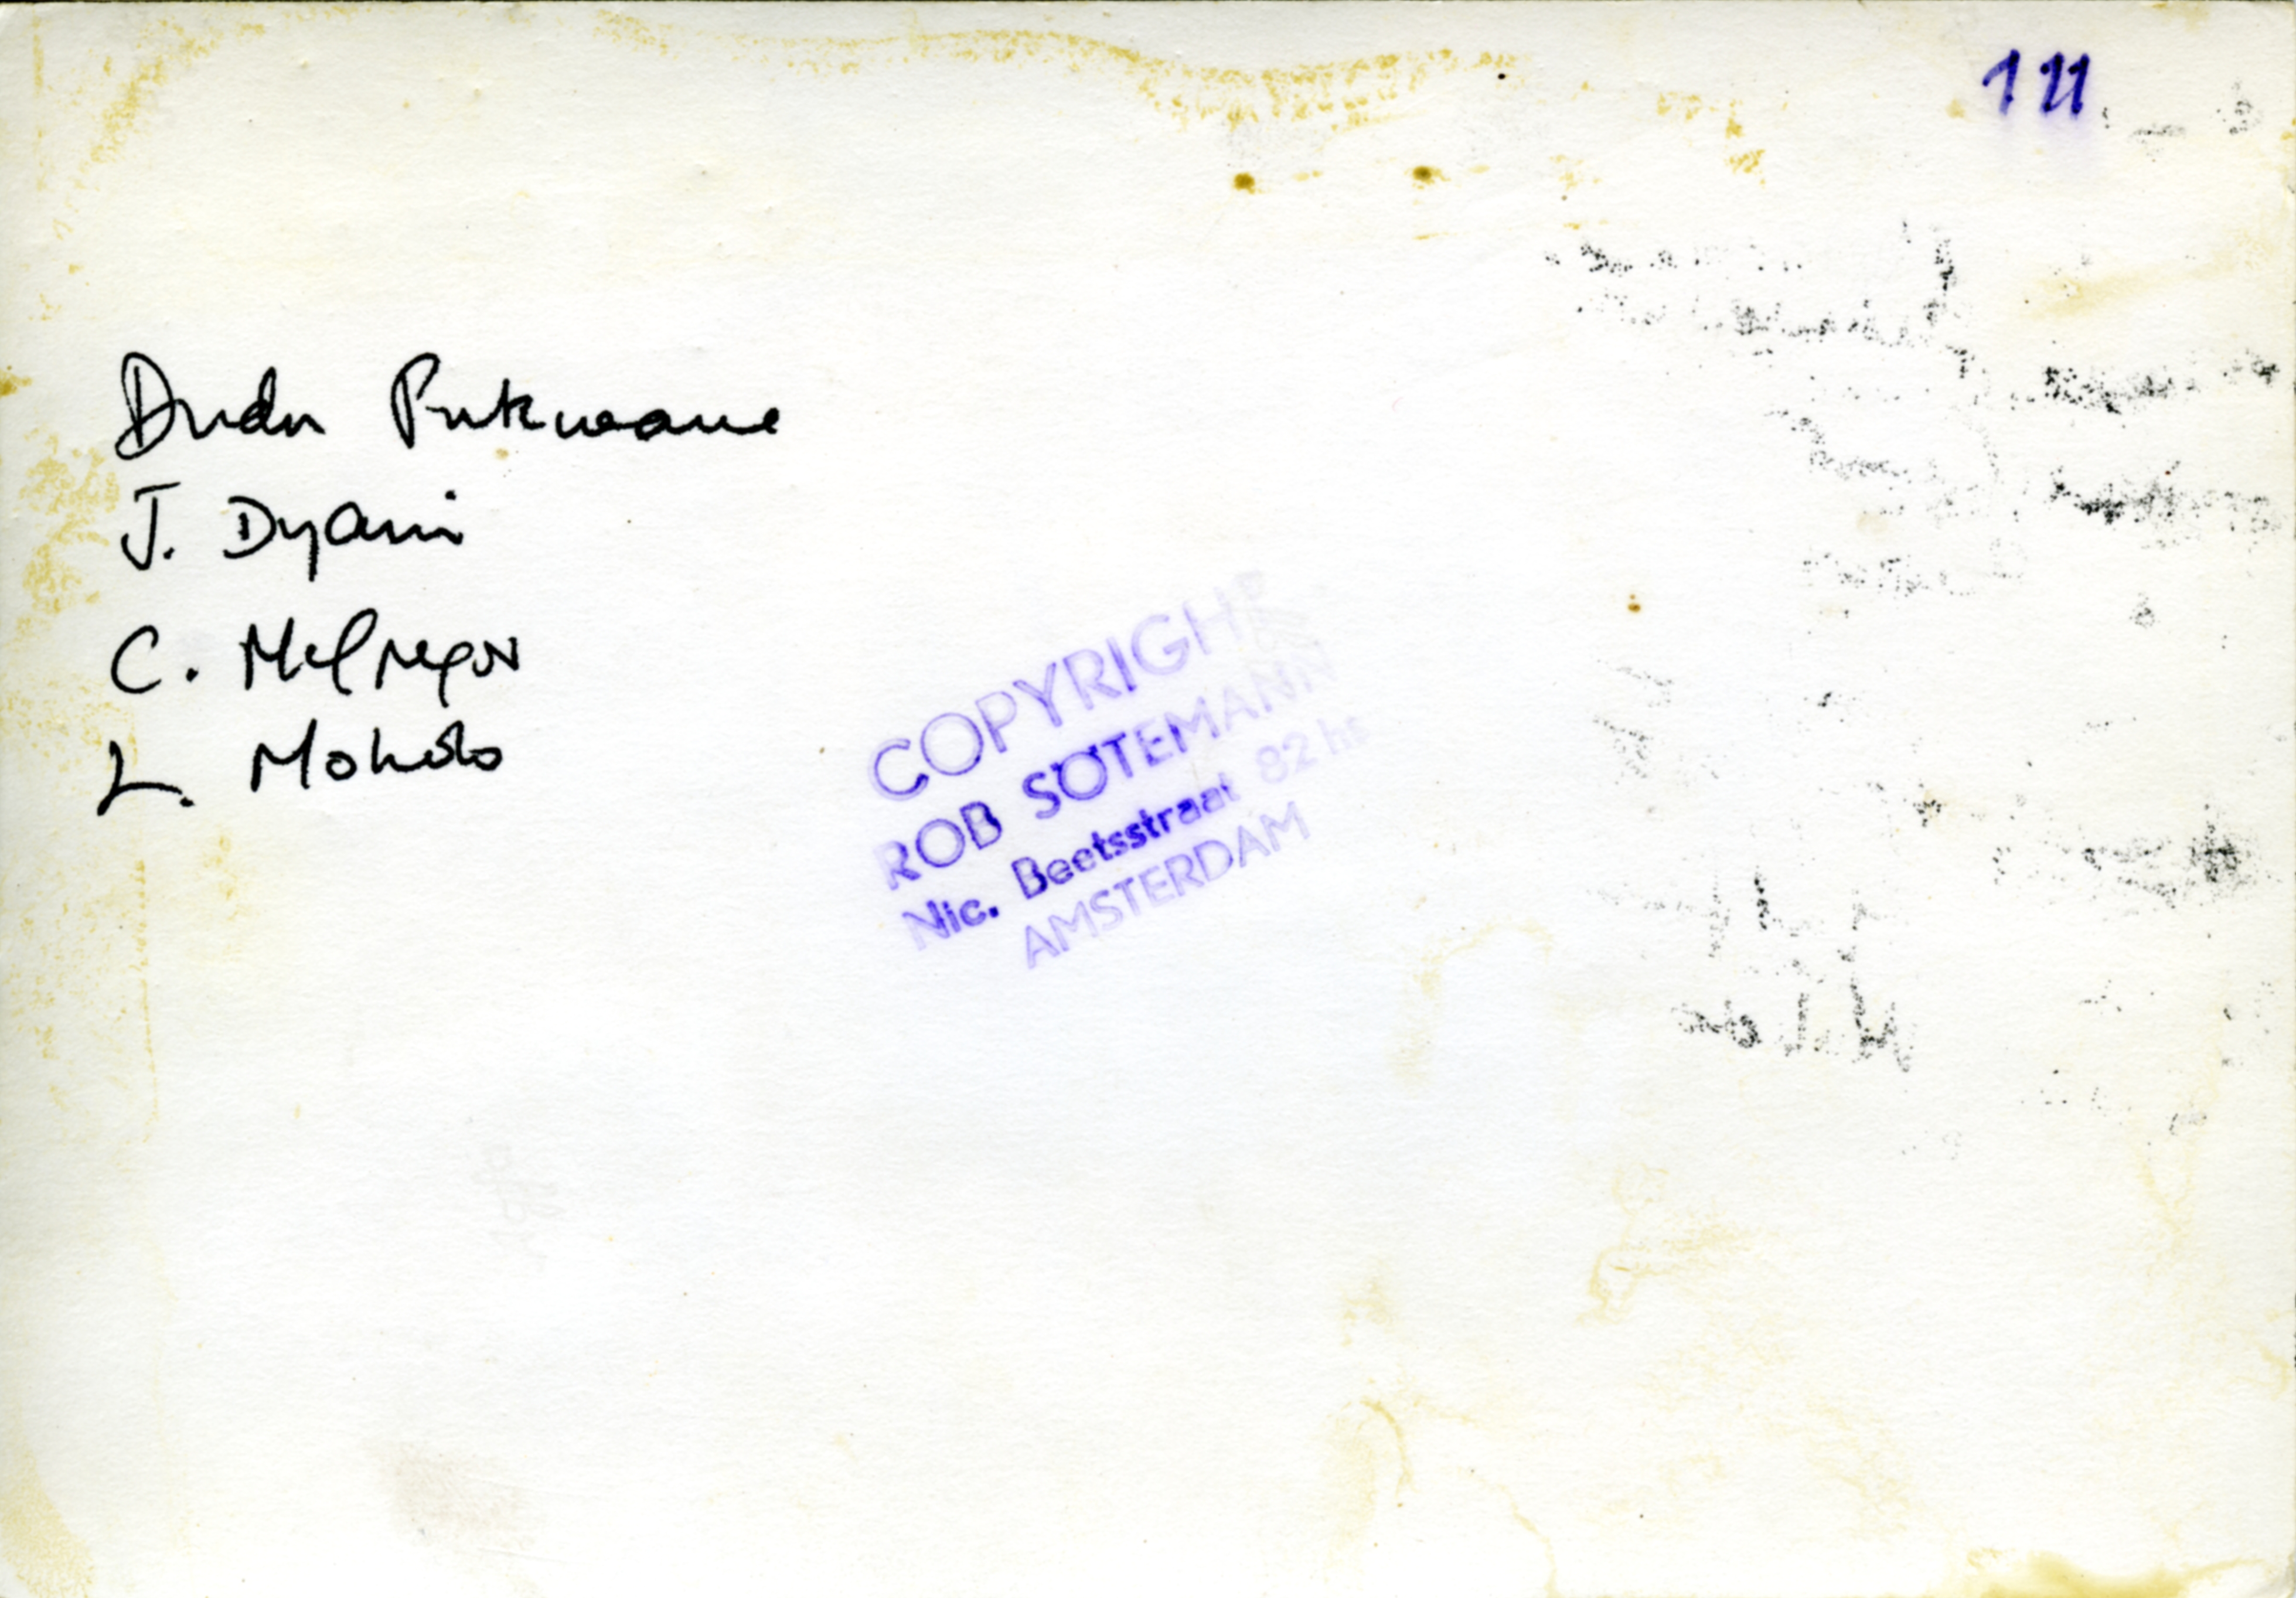 111
Dudu Pukwane
J. Dyani
C. McGregor
L. Moholo
COPYRIGHT
ROB SÖTEMANN
Nic. Beetsstraat 82 hs
AMSTERDAM